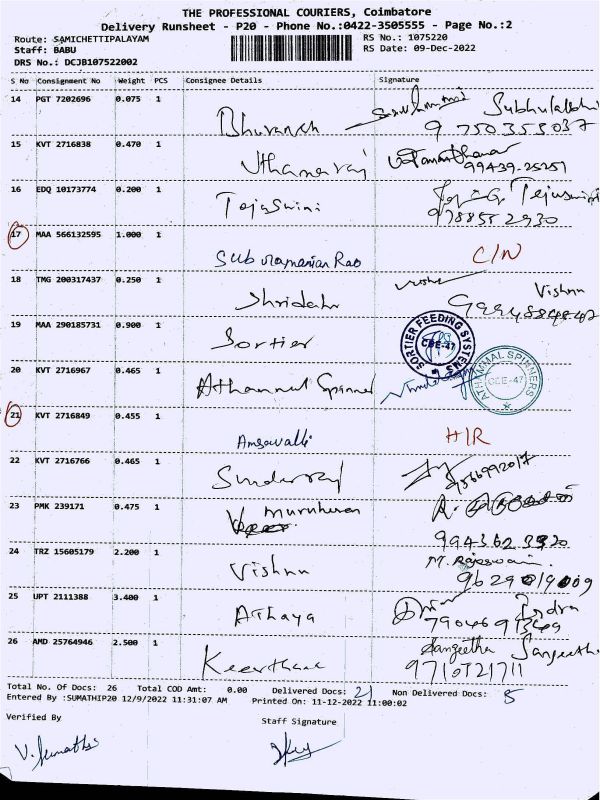 THE PROFESSIONAL COURIERS, Coimbatore
Delivery Runsheet - P20 - Phone No.:0422-3505555 - Page No.:2
Route: SAMICHETTIPALAYAM RS No.: 1075220
Staff: BABU RS Date: 09-Dec-2022
DRS No.: DCJB107522002
S No Consignment No Weight PCS Consignee Details Signature
14 PGT 7202696 0.075 1
Subhulakshmi
Bhuvanesh 9750355037
15 KVT 2716838 0.470 1
Uthamaraj 99439-25251
16 EDQ 10173774 0.200 1
Tejaswini Tejuswini
9788552930
17 MAA 566132595 1.000 1
Subramanian Rao C/N
18 TMG 200317437 0.250 1
Vishnu
Shridahr
19 MAA 290185731 0.900 1
Sortier SORTIER FEEDING SYSTEMS CBE-47
20 KVT 2716967 0.465 1
Athammal Spinners ATHAMMAL SPINNERS CBE-47
21 KVT 2716849 0.455 1
Amsavalli H/R
22 KVT 2716766 0.465 1
Sunderraj 9566992017
23 PMK 239171 0.475 1
Muruhesan
9943623920
24 TRZ 15605179 2.200 1 M. Rajeswari
Vishnu 9629019009
25 UPT 2111388 3.400 1
Athaya Indra
26 AMD 25764946 2.500 1 Sangeetha Sangeetha
Keerthana 9710721711
Total No. Of Docs: 26 Total COD Amt: 0.00 Delivered Docs: 21 Non Delivered Docs: 5
Entered By :SUMATHIP20 12/9/2022 11:31:07 AM Printed On: 11-12-2022 11:00:02
Verified By Staff Signature
V. Sumathi